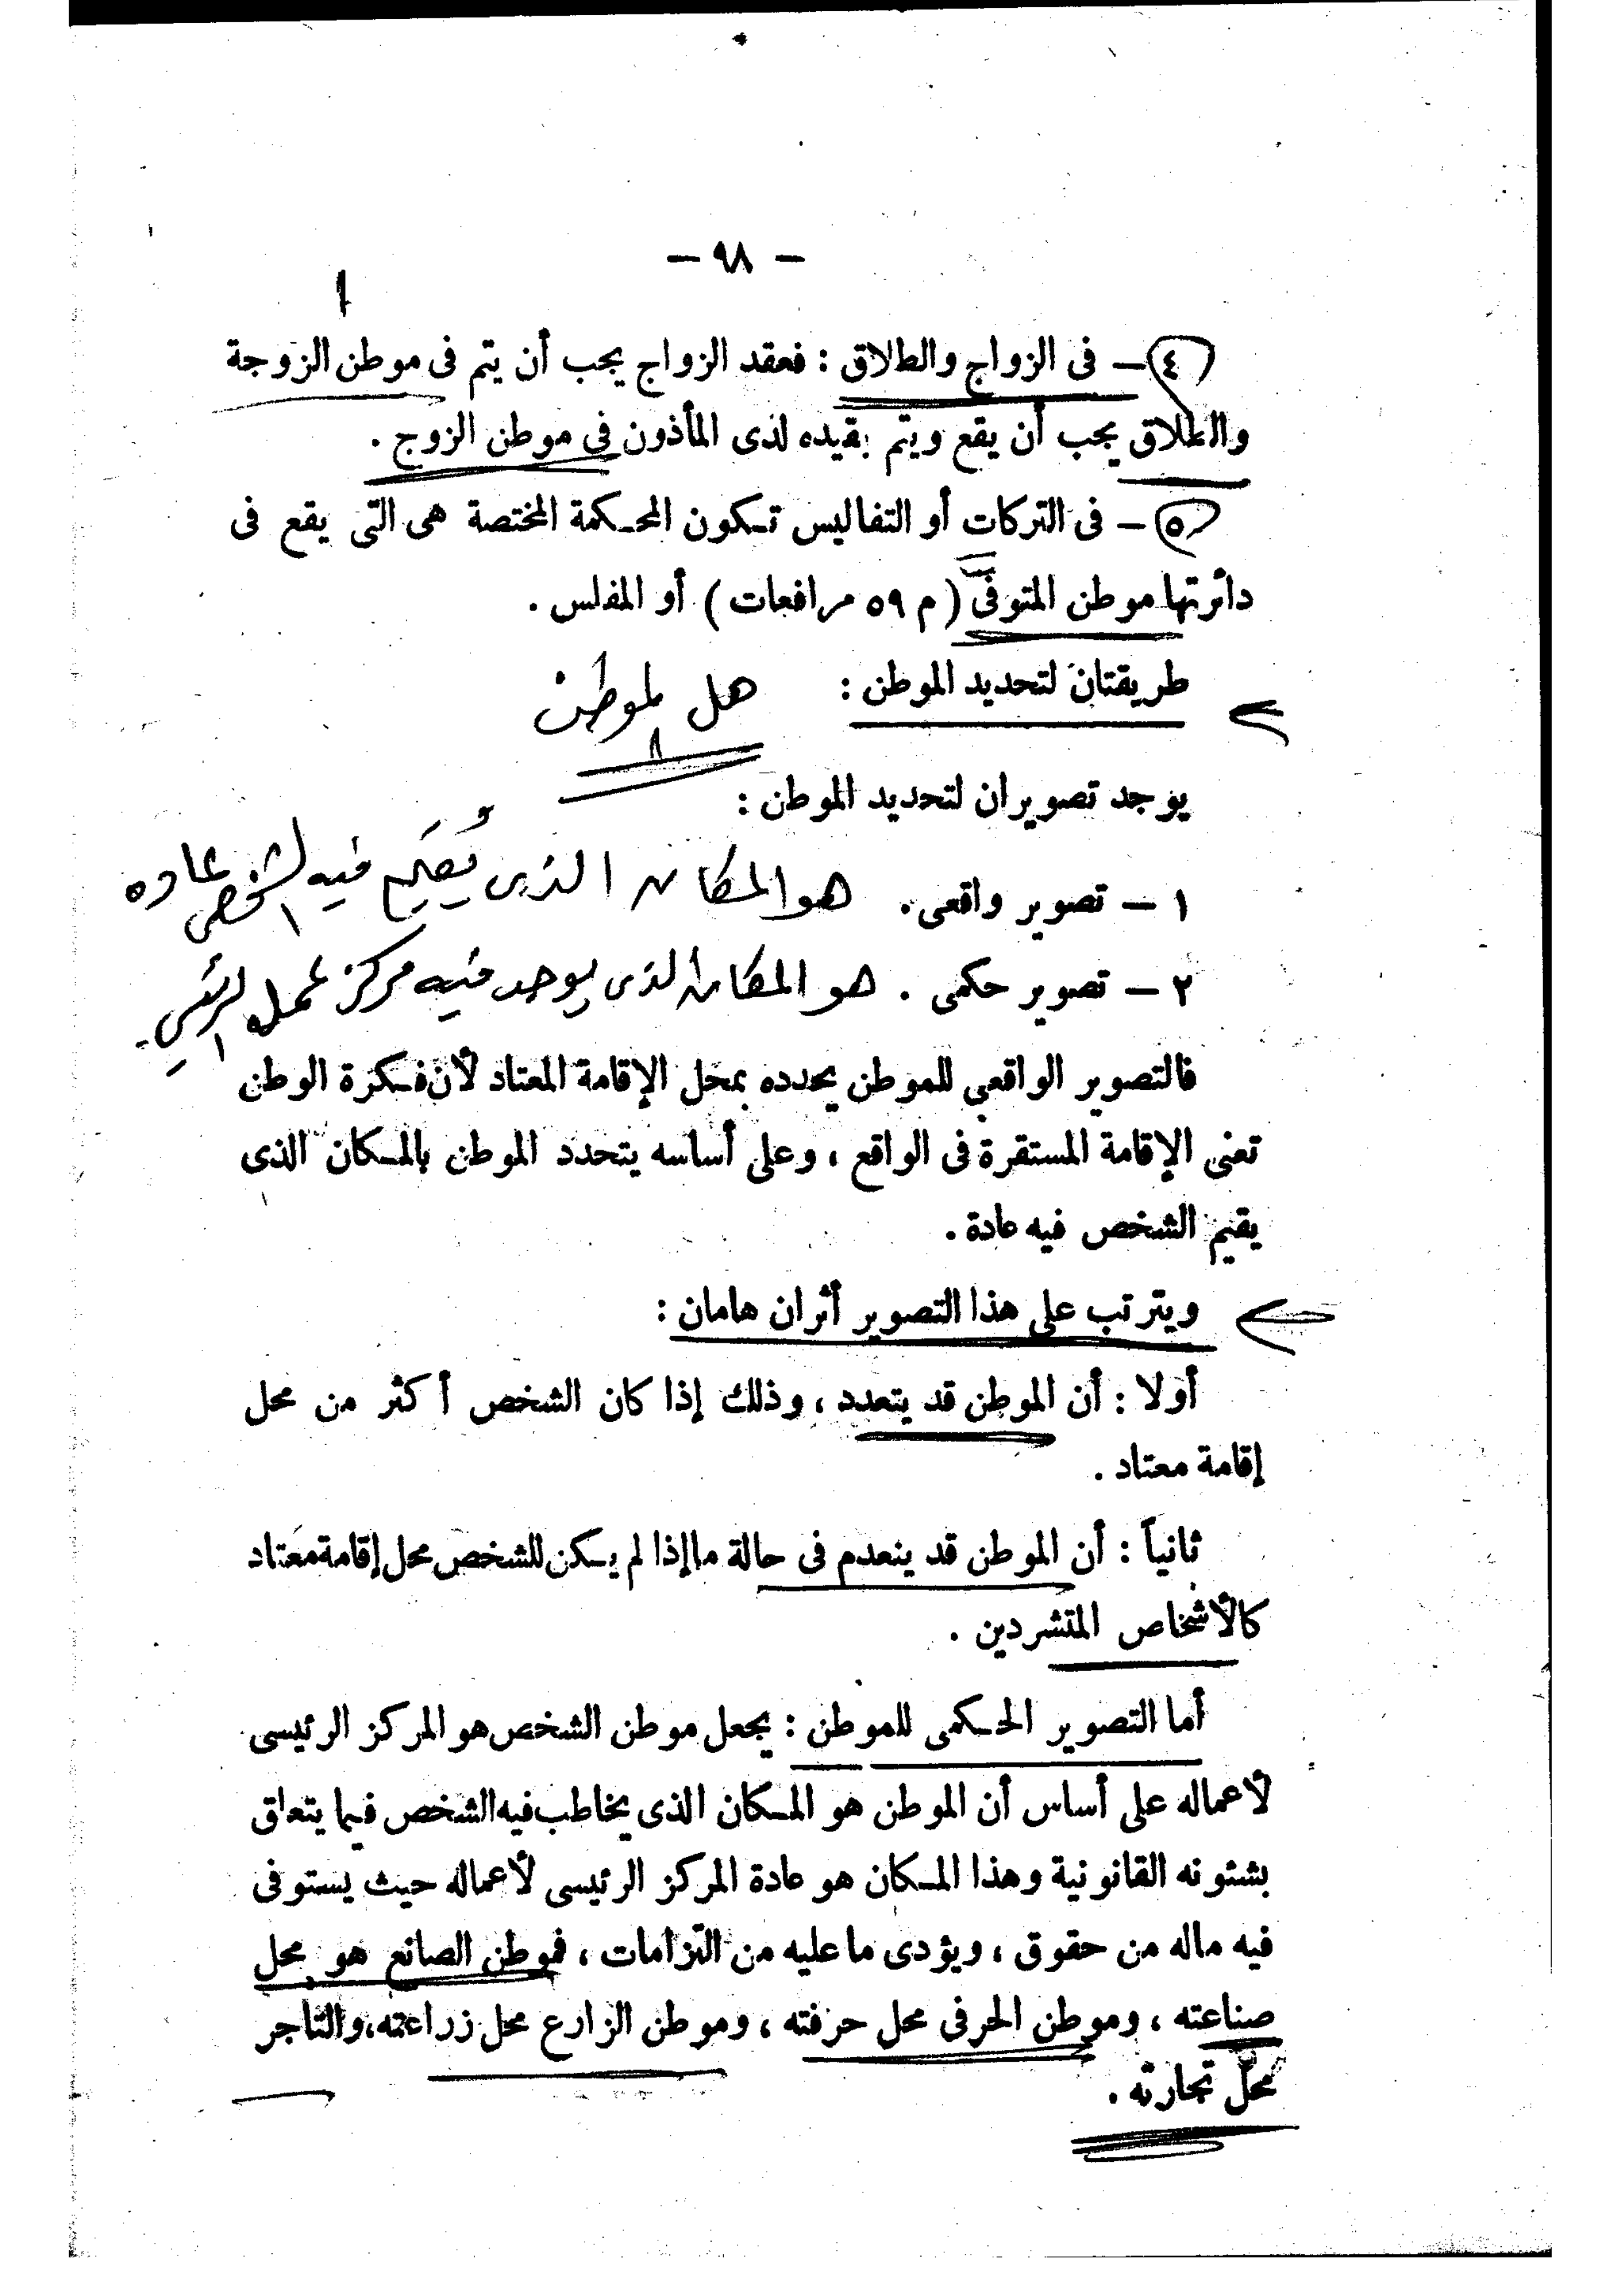 — ٩٨ —
٤ — فى الزواج والطلاق : فعقد الزواج يجب أن يتم فى موطن الزوجة
والطلاق يجب أن يقع ويتم بقيده لدى المأذون فى موطن الزوج .
٥ — فى التركات أو التفاليس تكون المحكمة المختصة هى التى يقع فى
دائرتها موطن المتوفى ( م ٥٩ مرافعات ) أو المفلس .
طريقتان لتحديد الموطن : هل لموطن
يوجد تصويران لتحديد الموطن :
١ — تصوير واقعى . هو المكان الذى يُقيم فيه الشخص عاده
٢ — تصوير حكمى . هو المكان الذى يوجد فيه مركز عمله الرئيسى
فالتصوير الواقعى للموطن يحدده بمحل الإقامة المعتاد لأن فكرة الوطن
تعنى الإقامة المستقرة فى الواقع ، وعلى أساسه يتحدد الموطن بالمكان الذى
يقيم الشخص فيه عادة .
ويترتب على هذا التصوير أثران هامان :
أولا : أن الموطن قد يتعدد ، وذلك إذا كان الشخص أكثر من محل
إقامة معتاد .
ثانياً : أن الموطن قد ينعدم فى حالة ما إذا لم يكن للشخص محل إقامة معتاد
كالأشخاص المتشردين .
أما التصوير الحكمى للموطن : يجعل موطن الشخص هو المركز الرئيسى
لأعماله على أساس أن الموطن هو المكان الذى يخاطب فيه الشخص فيما يتعلق
بشئونه القانونية وهذا المكان هو عادة المركز الرئيسى لأعماله حيث يستوفى
فيه ماله من حقوق ، ويؤدى ما عليه من التزامات ، فموطن الصانع هو محل
صناعته ، وموطن الحرفى محل حرفته ، وموطن الزارع محل زراعته، والتاجر
محل تجارته .